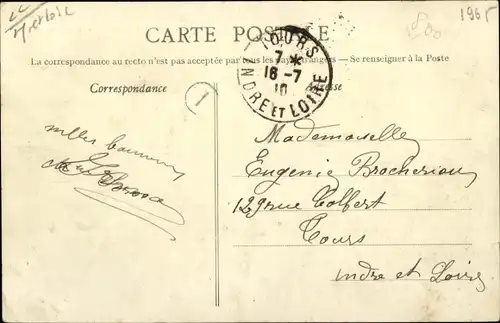 1965
CARTE POSTALE.
TOURS
7 *
16-7
10
INDRE ET LOIRE
La correspondance au recto n'est pas acceptée par tous les pays étrangers — Se renseigner à la Poste
Correspondance
Adresse
1
milles
Mademoiselle
Eugenie Brocheriou
129 rue Colbert
Tours
indre et Loire